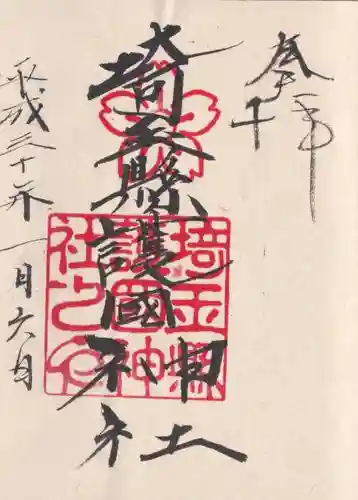 奉拝
埼玉縣護國神社
平成三十年一月六日
埼玉縣
護國神
社之印